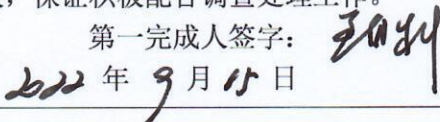 保证积极配合调查处理工作。
第一完成人签字：
2022 年 9 月 15 日